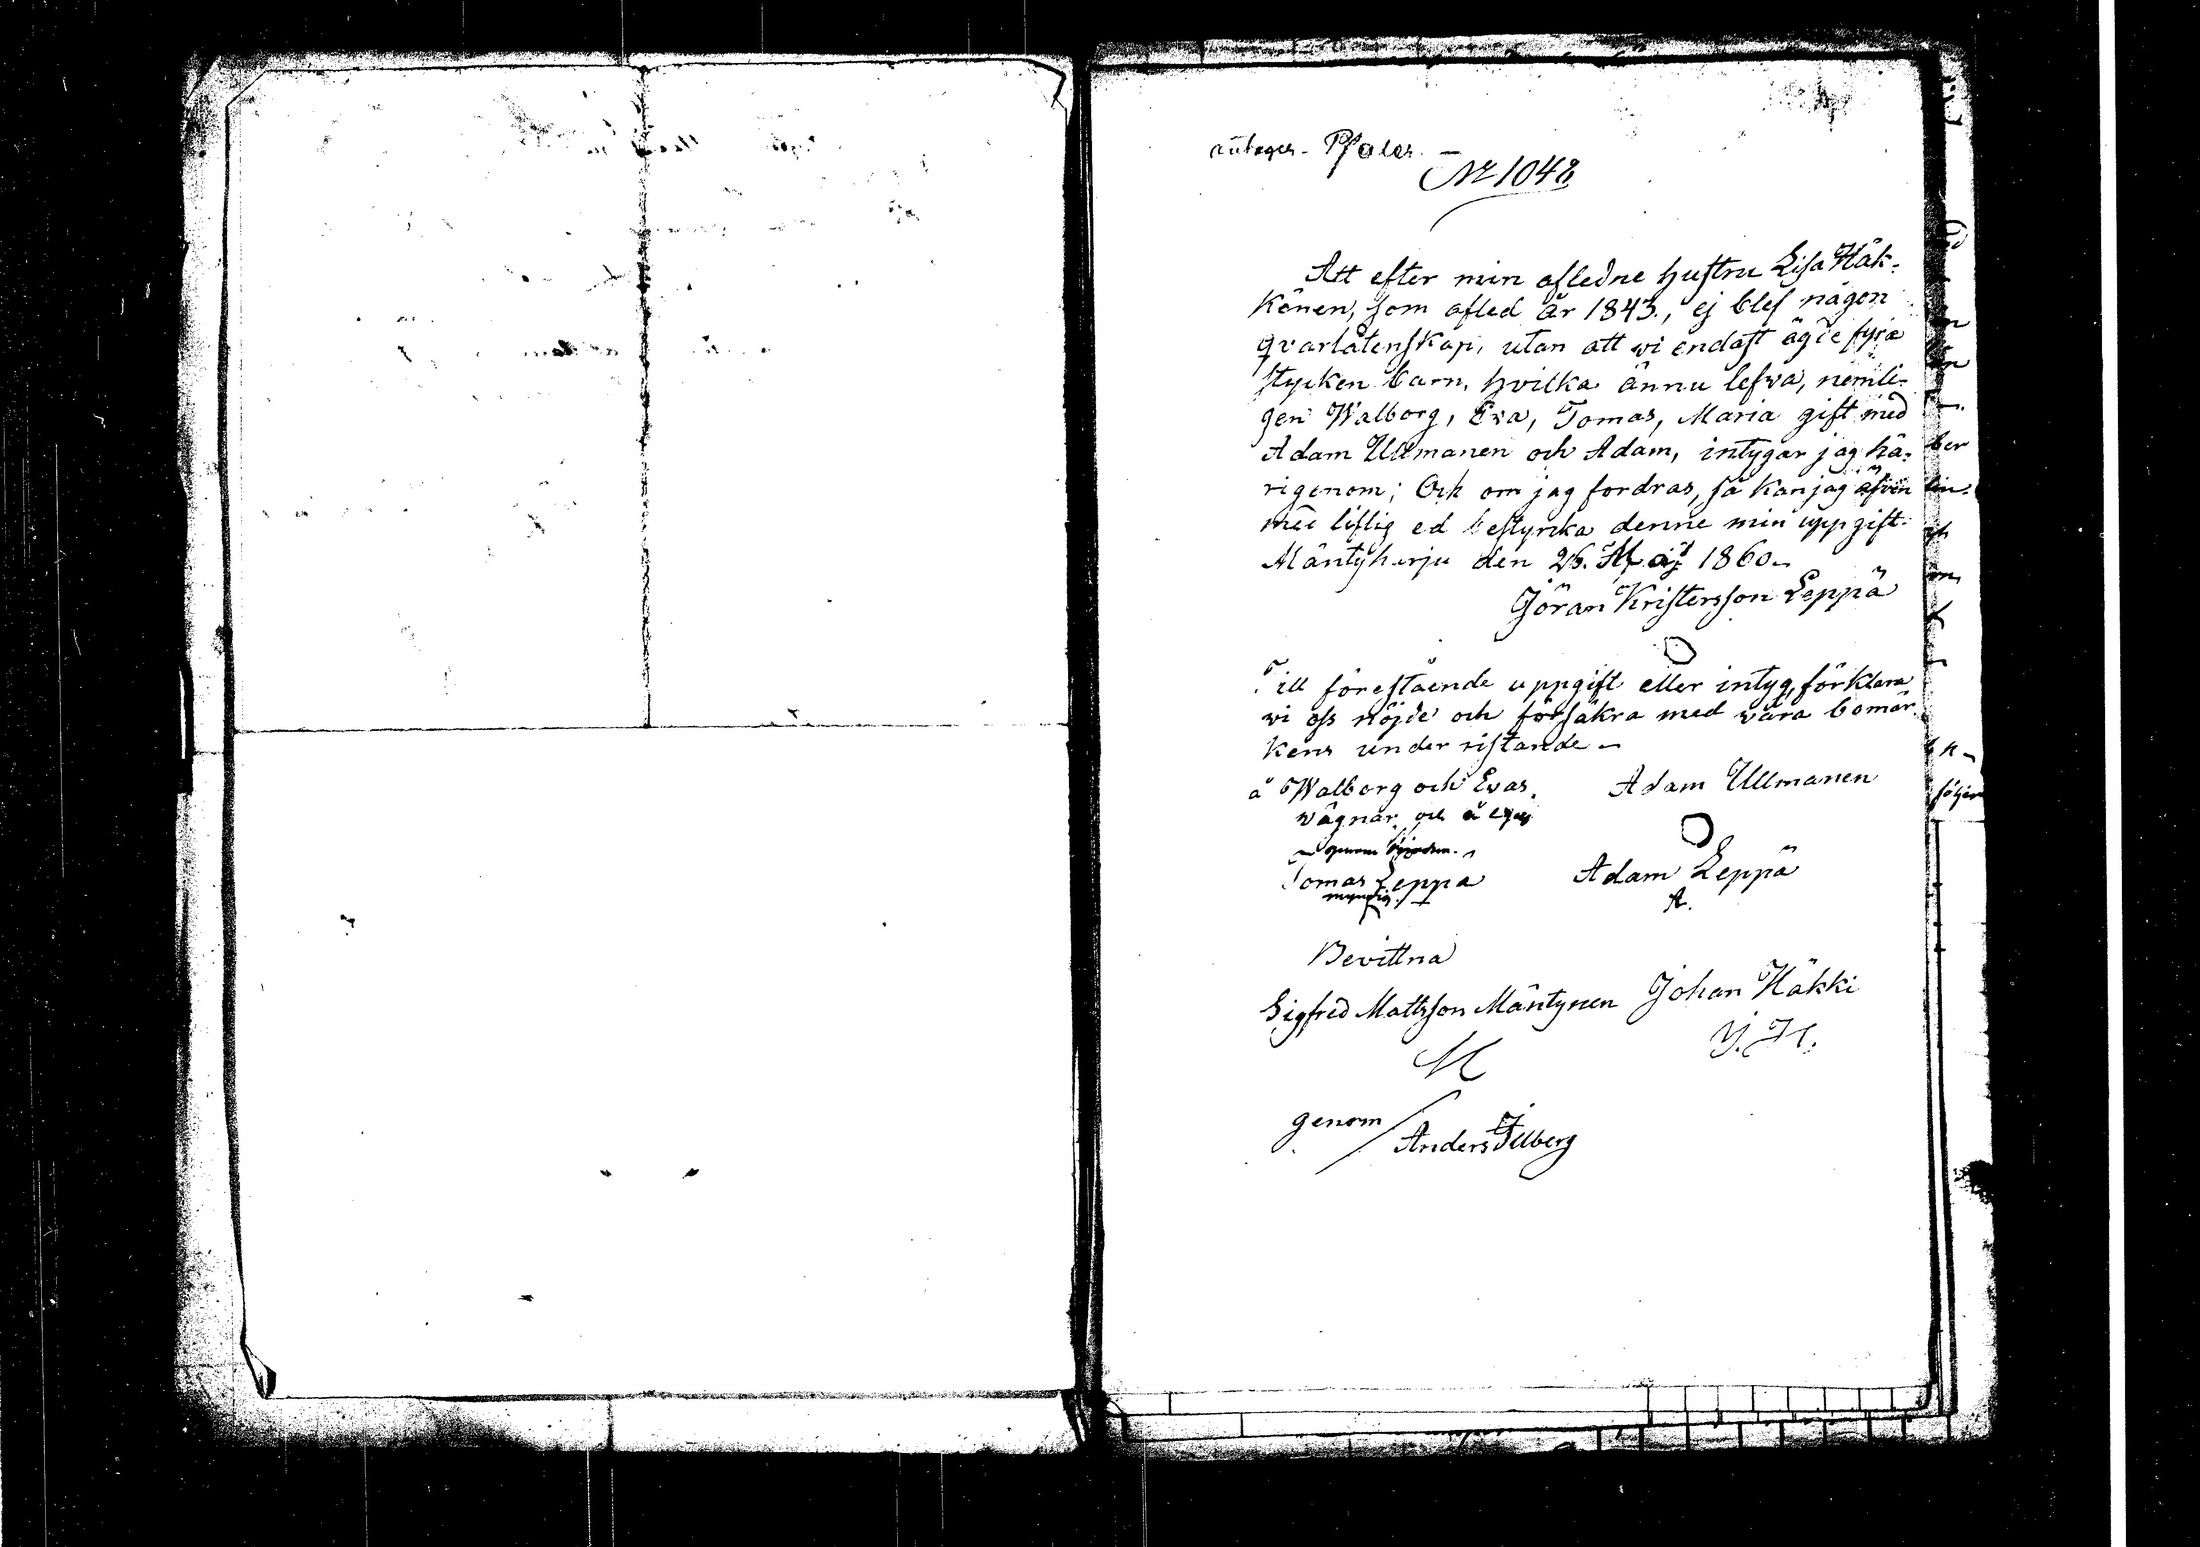 antages. Pfaler.
No 1048
Att efter min aflidne hustru Lisa Häk-
könen, som afled år 1843., ej blef någon
qvarlåtenskap, utan att wi endast ägde fyra
stycken barn, hvilka ännu lefva, nemli-
gen Walborg, Eva, Tomas, Maria gift med
Adam Ullmanen och Adam, intygar jag hä-
rigenom; Och om jag fordras, så kan jag äfven
med liflig ed bestyrka denne min uppgift.
Mäntyharju den 26. Maji 1860.
Jöran Kristersson Leppä
Till förestående uppgift eller intyg, förklara
wi oss nöjde och försäkra med wåra bomär-
kens underristande
å Walborg och Evas
wägnar, och å egen
Adam Ullmanen
Tomas Leppä
myndig.
Adam Leppä
A.
Bevittna
Sigfred Mattsson Mäntynen Johan Häkki
M
J. H.
genom
Anders Illberg